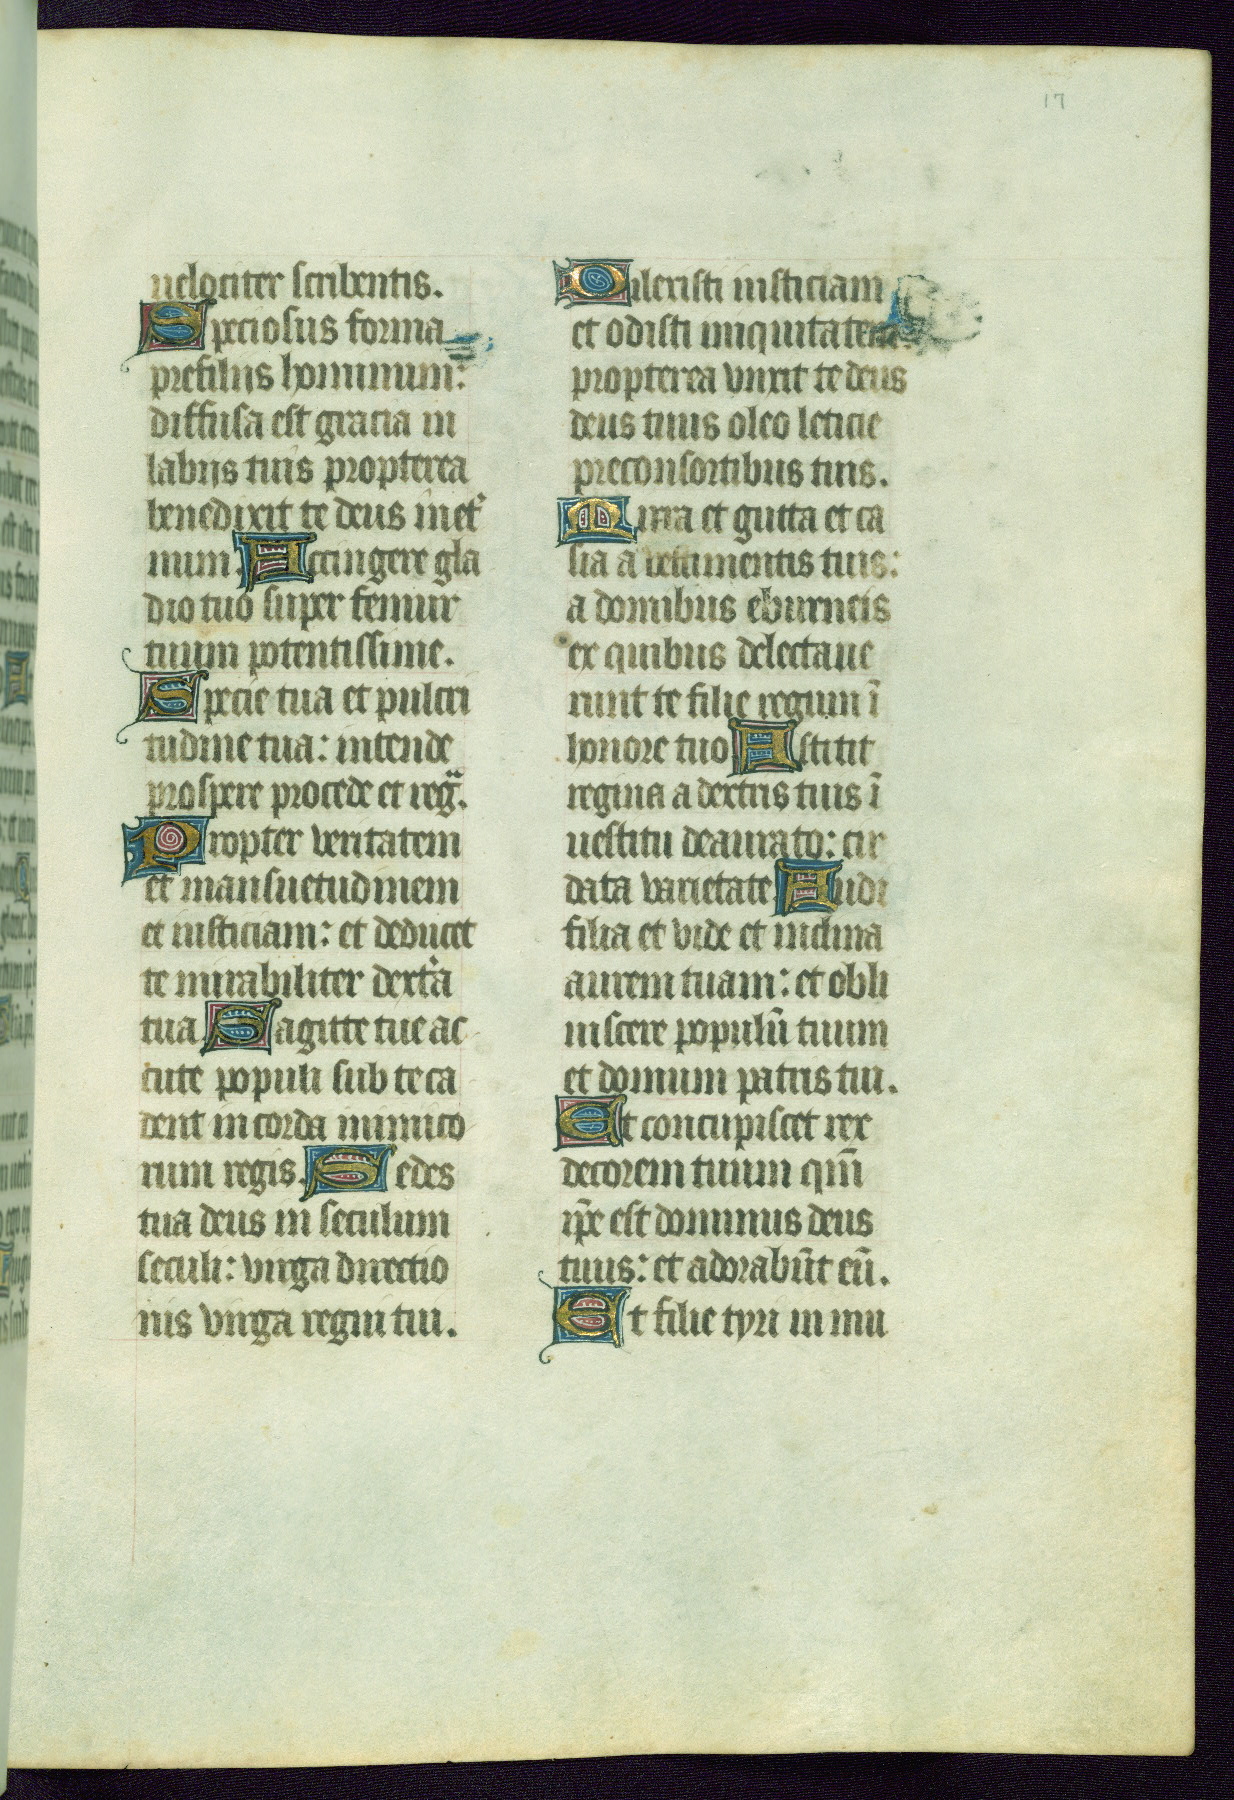 17
uelociter scribentis.
Speciosus forma
prefiliis hominum:
diffusa est gracia in
labiis tuis propterea
benedixit te deus in et̉
num. Accingere gla
dio tuo super femur
tuum potentissime.
Specie tua et pulcri
tudine tua: intende
prospere procede et regᷓ.
Propter veritatem
et mansuetudinem
et iusticiam: et deducet
te mirabiliter dext̉a
tua Sagitte tue ac
cute populi sub te ca
dent in corda inimico
rum regis. Sedes
tua deus in seculum
seculi: virga directio
nis virga regni tui.
Dilexisti iusticiam
et odisti iniquitatem:
propterea vnxit te deus
deus tuus oleo leticie
preconsortibus tuis.
Mirra et gutta et ca
sia a vestimentis tuis:
a domibus eburneis
ex quibus delectaue
runt te filie regum ī
honore tuo Astitit
regina a dextris tuis ī
uestitu deaurato: cir
data varietate Audi
filia et vide et inclina
aurem tuam: et obli
uiscere populū tuum
et domum patris tui.
Et concupiscet rex
decorem tuum qm̄
ip̄e est dominus deus
tuus: et adorabūt eū.
Et filie tyri in mu